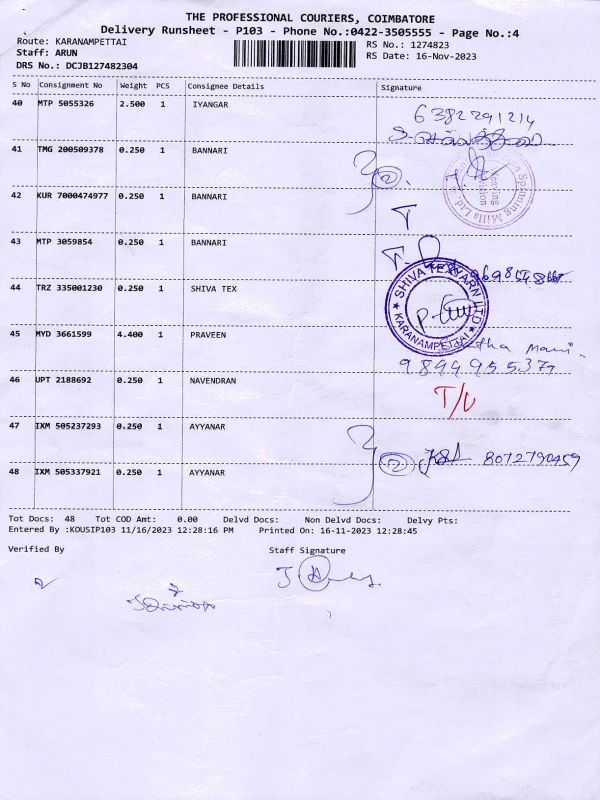 THE PROFESSIONAL COURIERS, COIMBATORE
Delivery Runsheet - P103 - Phone No.:0422-3505555 - Page No.:4
Route: KARANAMPETTAI RS No.: 1274823
Staff: ARUN RS Date: 16-Nov-2023
DRS No.: DCJB127482304
S No Consignment No Weight PCS Consignee Details Signature
40 MTP 5055326 2.500 1 IYANGAR
6382291214
41 TMG 200509378 0.250 1 BANNARI
Spinning Mills Ltd.
42 KUR 7000474977 0.250 1 BANNARI
43 MTP 3059854 0.250 1 BANNARI
44 TRZ 335001230 0.250 1 SHIVA TEX
SHIVA TEXYARN LTD
KARANAMPETTAI
45 MYD 3661599 4.400 1 PRAVEEN
9894495537
46 UPT 2188692 0.250 1 NAVENDRAN
47 IXM 505237293 0.250 1 AYYANAR
48 IXM 505337921 0.250 1 AYYANAR
8072790459
Tot Docs: 48 Tot COD Amt: 0.00 Delvd Docs: Non Delvd Docs: Delvy Pts:
Entered By :KOUSIP103 11/16/2023 12:28:16 PM Printed On: 16-11-2023 12:28:45
Verified By Staff Signature